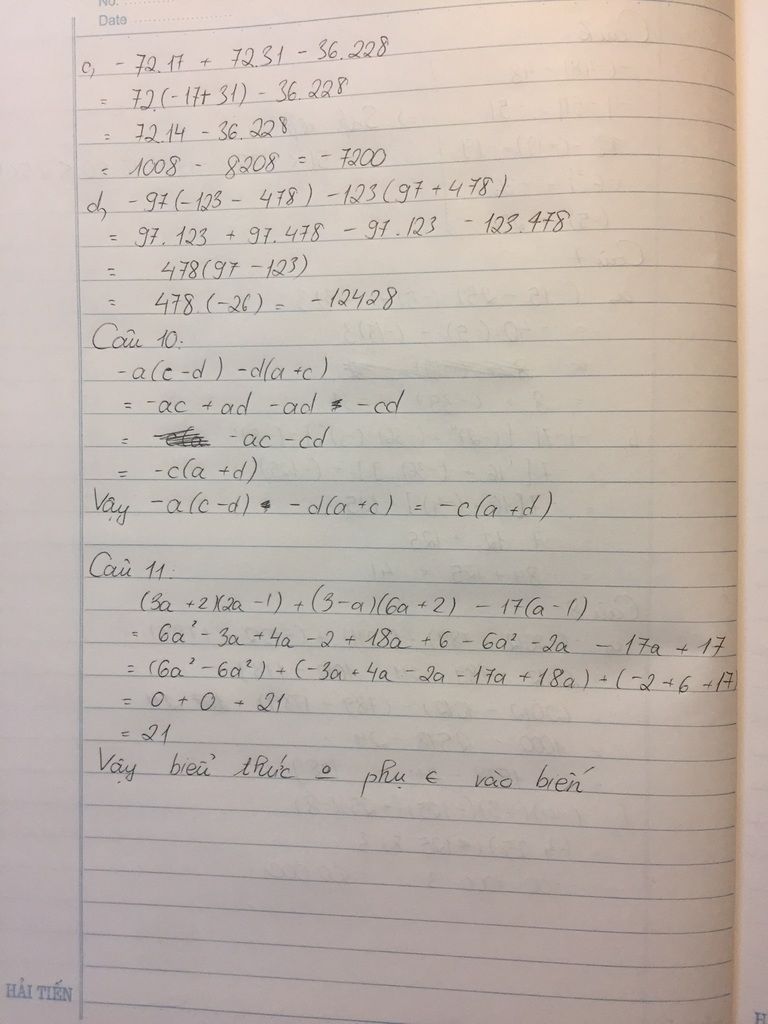 No.
Date
c, - 72.17 + 72.31 - 36.228
= 72.(-17+31) - 36.228
= 72.14 - 36.228
= 1008 - 8208 = - 7200
d, -97(-123 - 478) -123(97+478)
= 97.123 + 97.478 - 97.123 - 123.478
= 478(97 -123)
= 478.(-26) = -12428
Câu 10:
-a(c-d) -d(a+c)
= -ac +ad -ad -cd
= -ac -cd
= -c(a+d)
Vậy -a(c-d) -d(a+c) = -c(a+d)
Câu 11:
(3a +2)(2a -1) + (3-a)(6a+2) - 17(a-1)
= 6a² - 3a + 4a - 2 + 18a + 6 - 6a² - 2a - 17a + 17
= (6a² - 6a²) + (-3a + 4a - 2a - 17a + 18a) + (-2 + 6 + 17)
= 0 + 0 + 21
= 21
Vậy biểu thức o phụ є vào biến
HẢI TIẾN
H